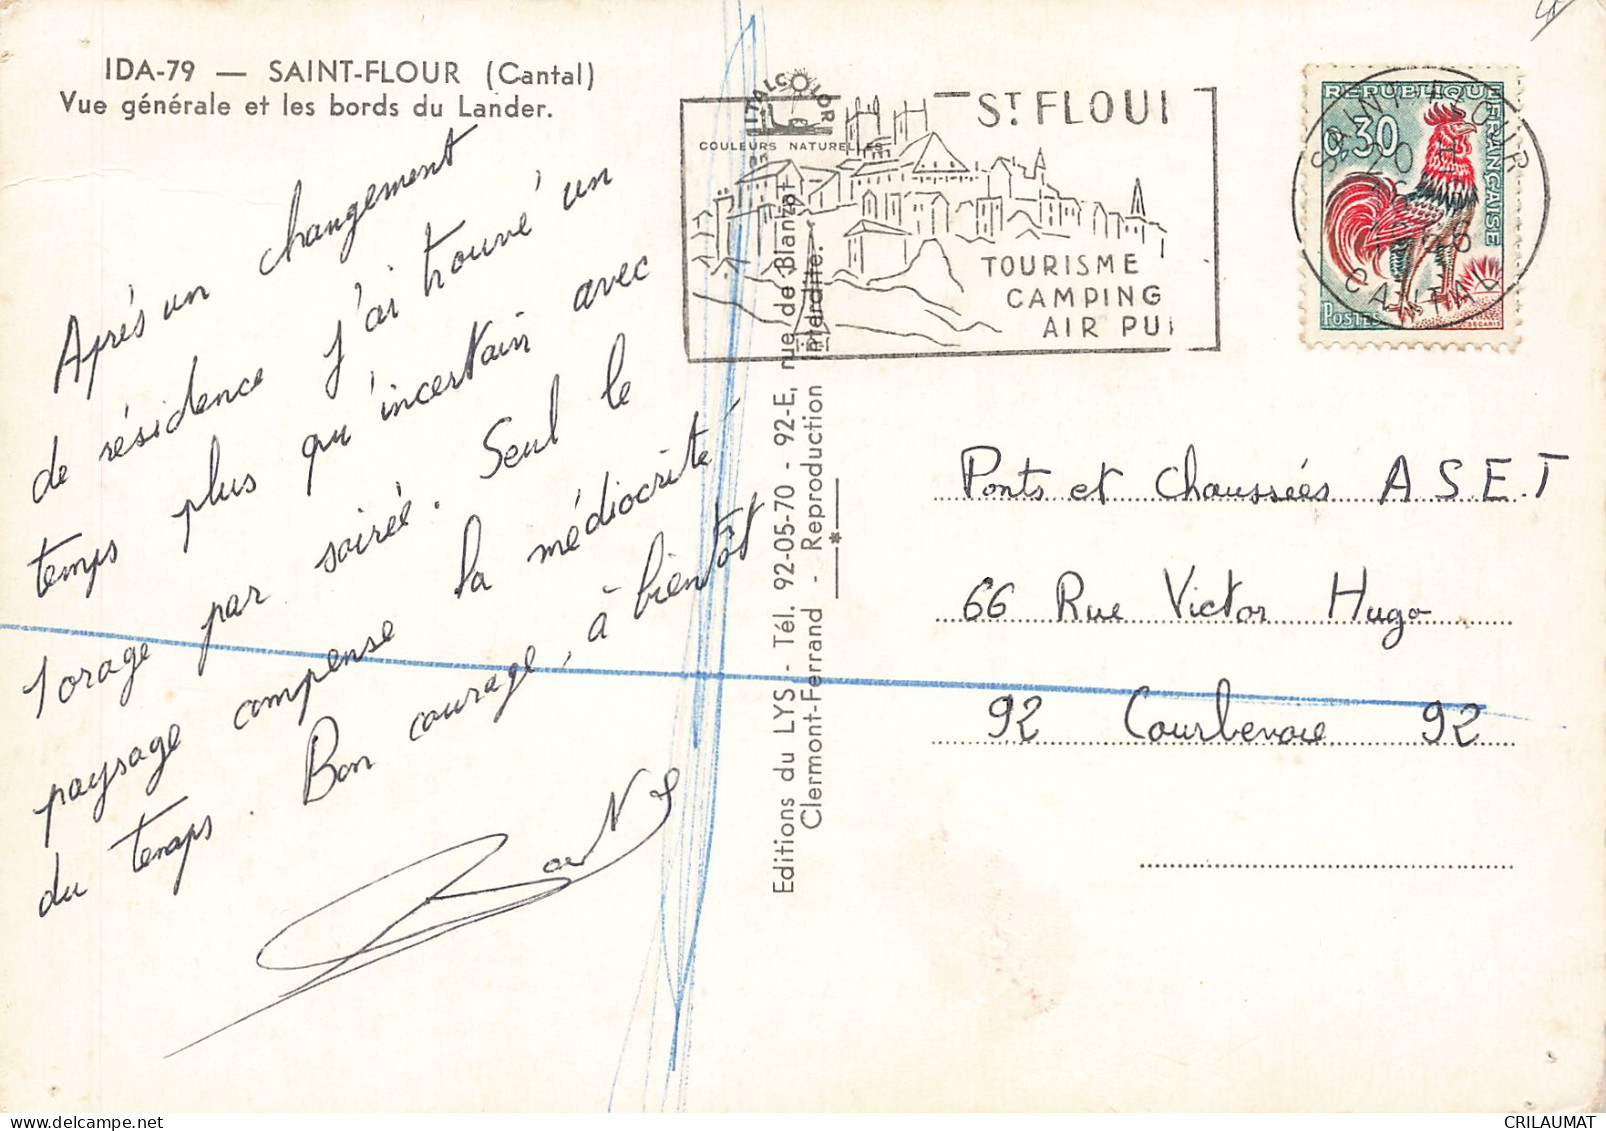 IDA-79 — SAINT-FLOUR (Cantal)
Vue générale et les bords du Lander.
Après un changement
de résidence j'ai trouvé un
temps plus qu'incertain avec
1 orage par soirée. Seul le
paysage compense la médiocrité
du temps. Bon courage, à bientôt
ITALCOLOR
COULEURS NATURELLES
ST FLOUR
TOURISME
CAMPING
AIR PUR
Editions du LYS - Tél. 92-05-70 - 92-E, rue de Blanzat
Clermont-Ferrand - Reproduction interdite.
REPUBLIQUE FRANÇAISE
0,30
POSTES
DECARIS
SAINT FLOUR
CANTAL
Ponts et Chaussées A S.E.T
66 Rue Victor Hugo
92 Courbevoie 92
CRILAUMAT